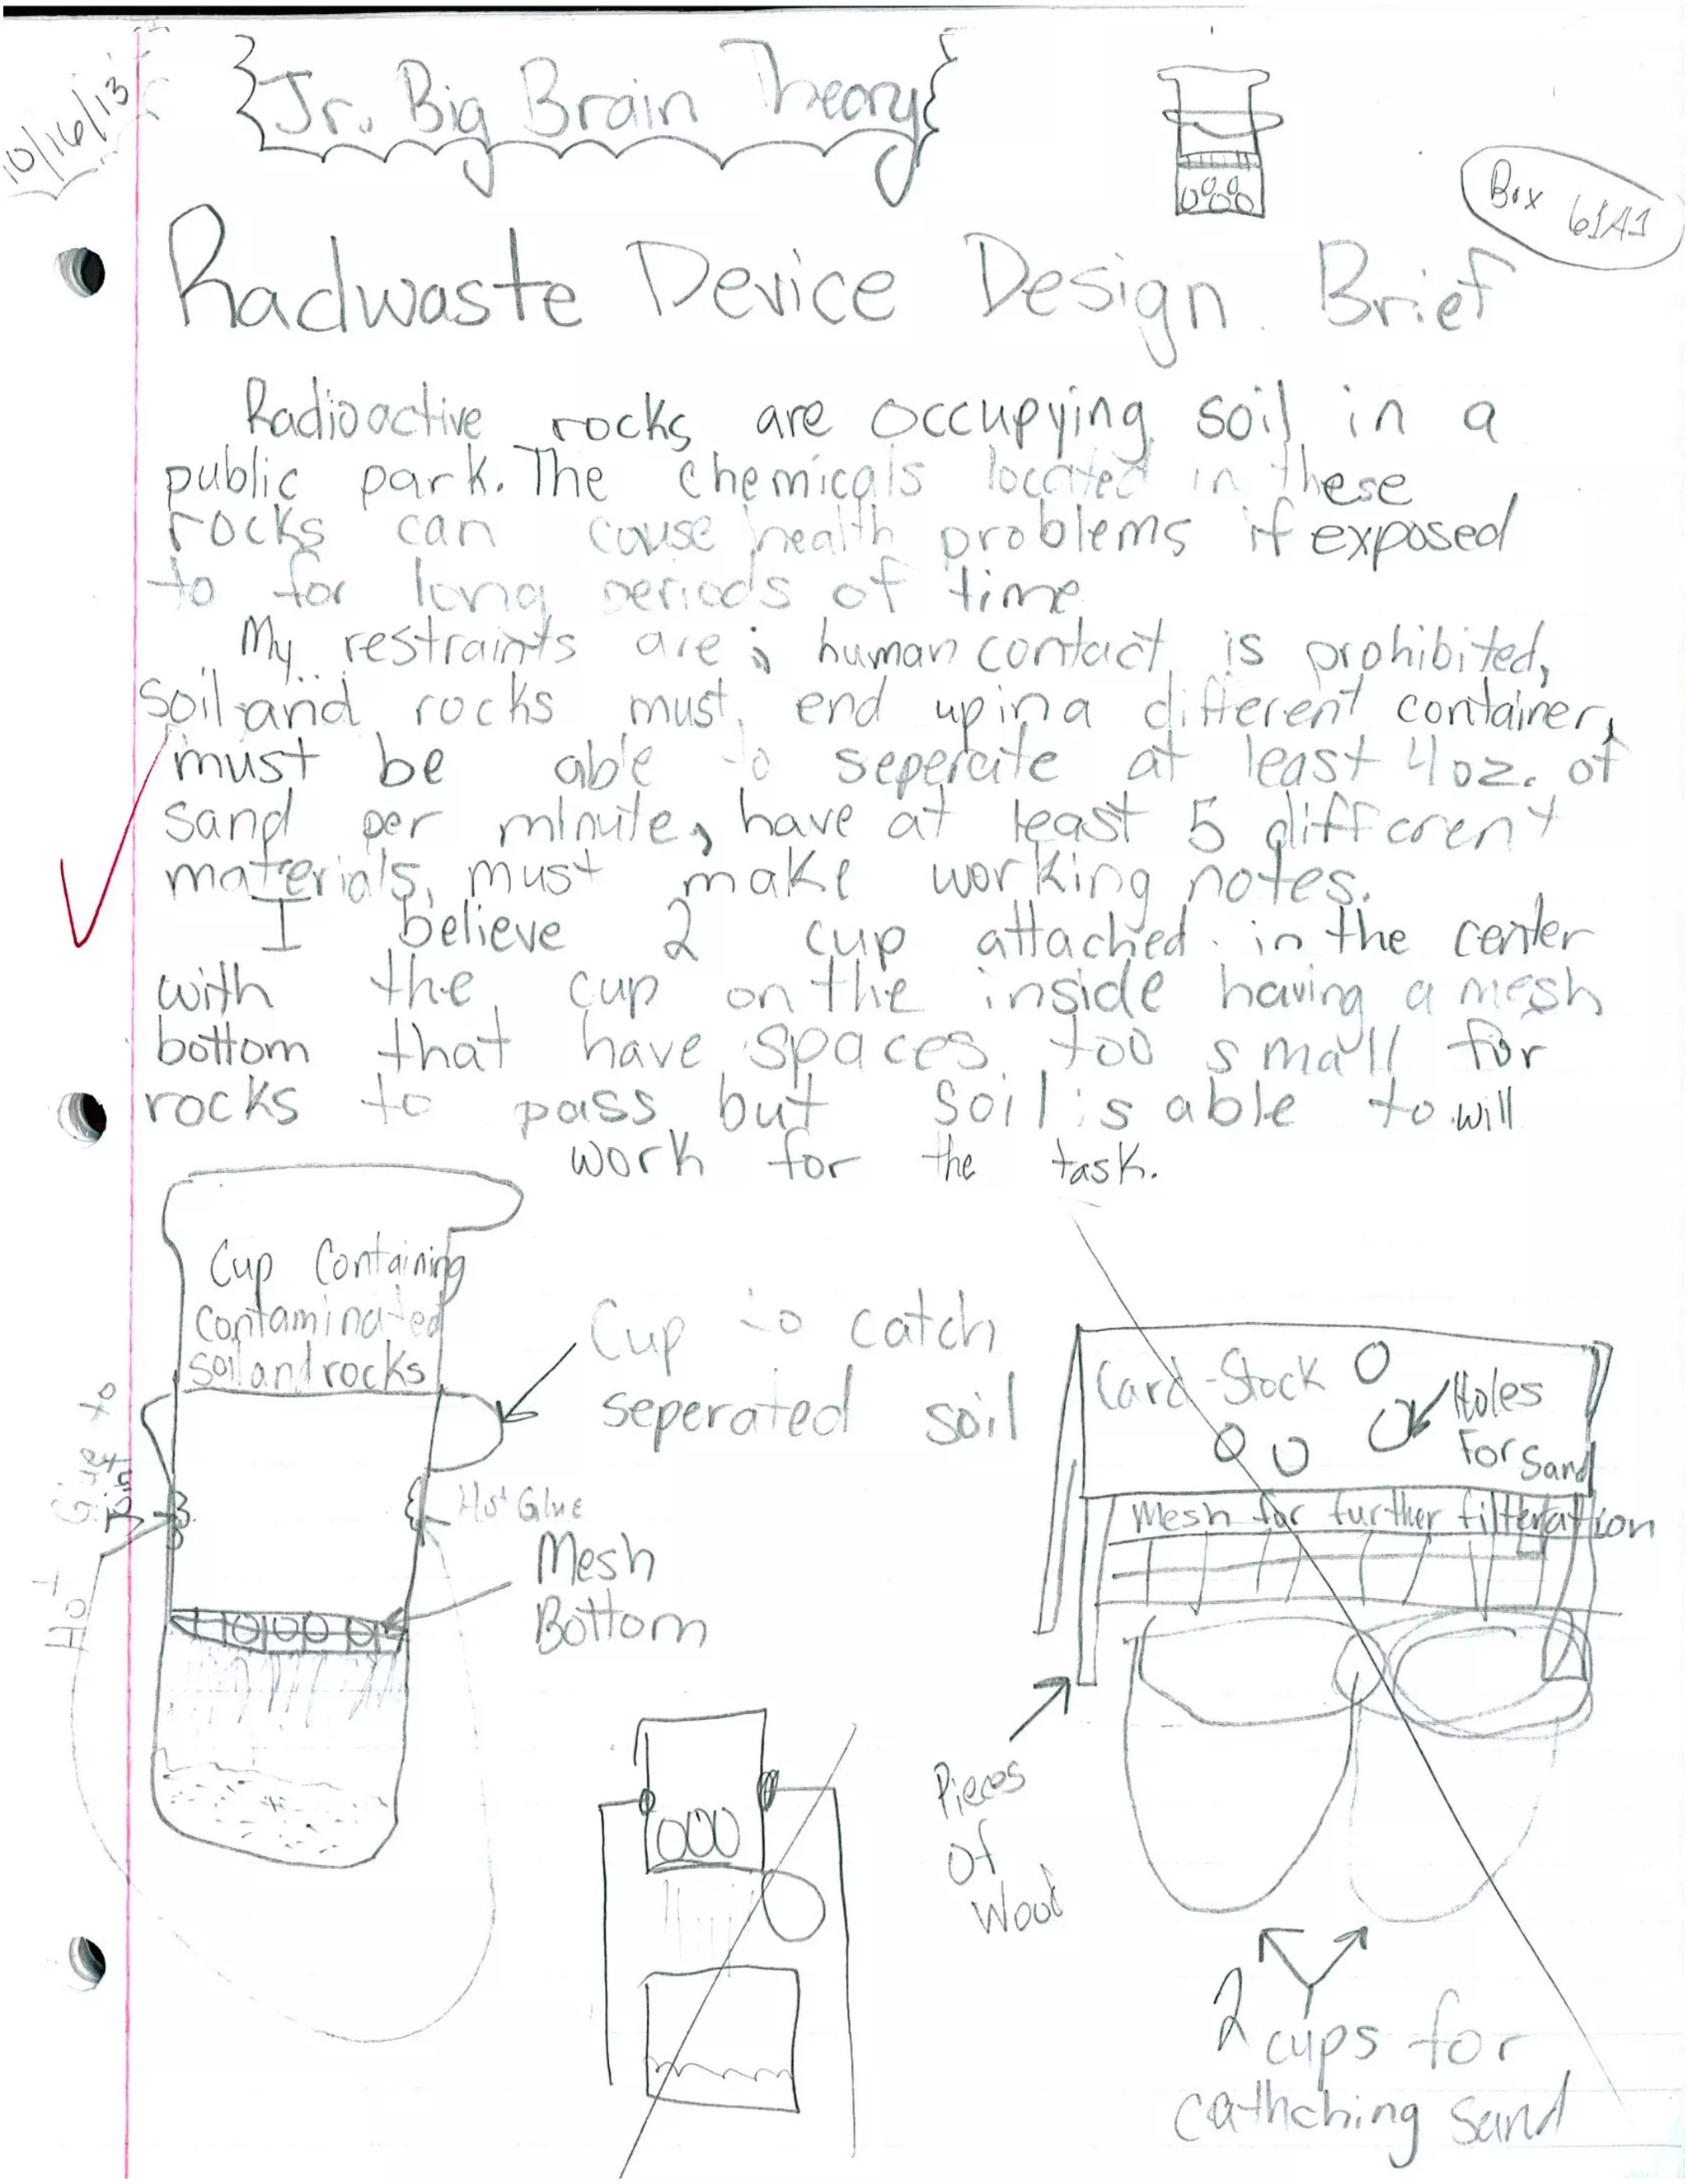 10/16/13
Jr. Big Brain Theory
Box 61A1
Radwaste Device Design Brief
Radioactive rocks are occupying soil in a
public park. The chemicals located in these
rocks can cause health problems if exposed
to for long periods of time
My restraints are; human contact is prohibited,
soil and rocks must end up in a different container,
must be able to seperate at least 4 oz. of
sand per minute, have at least 5 different
materials, must make working notes.
I believe 2 cup attached in the center
with the cup on the inside having a mesh
bottom that have spaces too small for
rocks to pass but soil is able to will
work for the task.
Cup Containing
contaminated
soil and rocks
Cup to catch
seperated soil
Hot Glue to
Hot Glue
Mesh
Bottom
Card-Stock
Holes
For Sand
Mesh for further filteration
Pieces
of
Wood
2 cups for
cathching sand